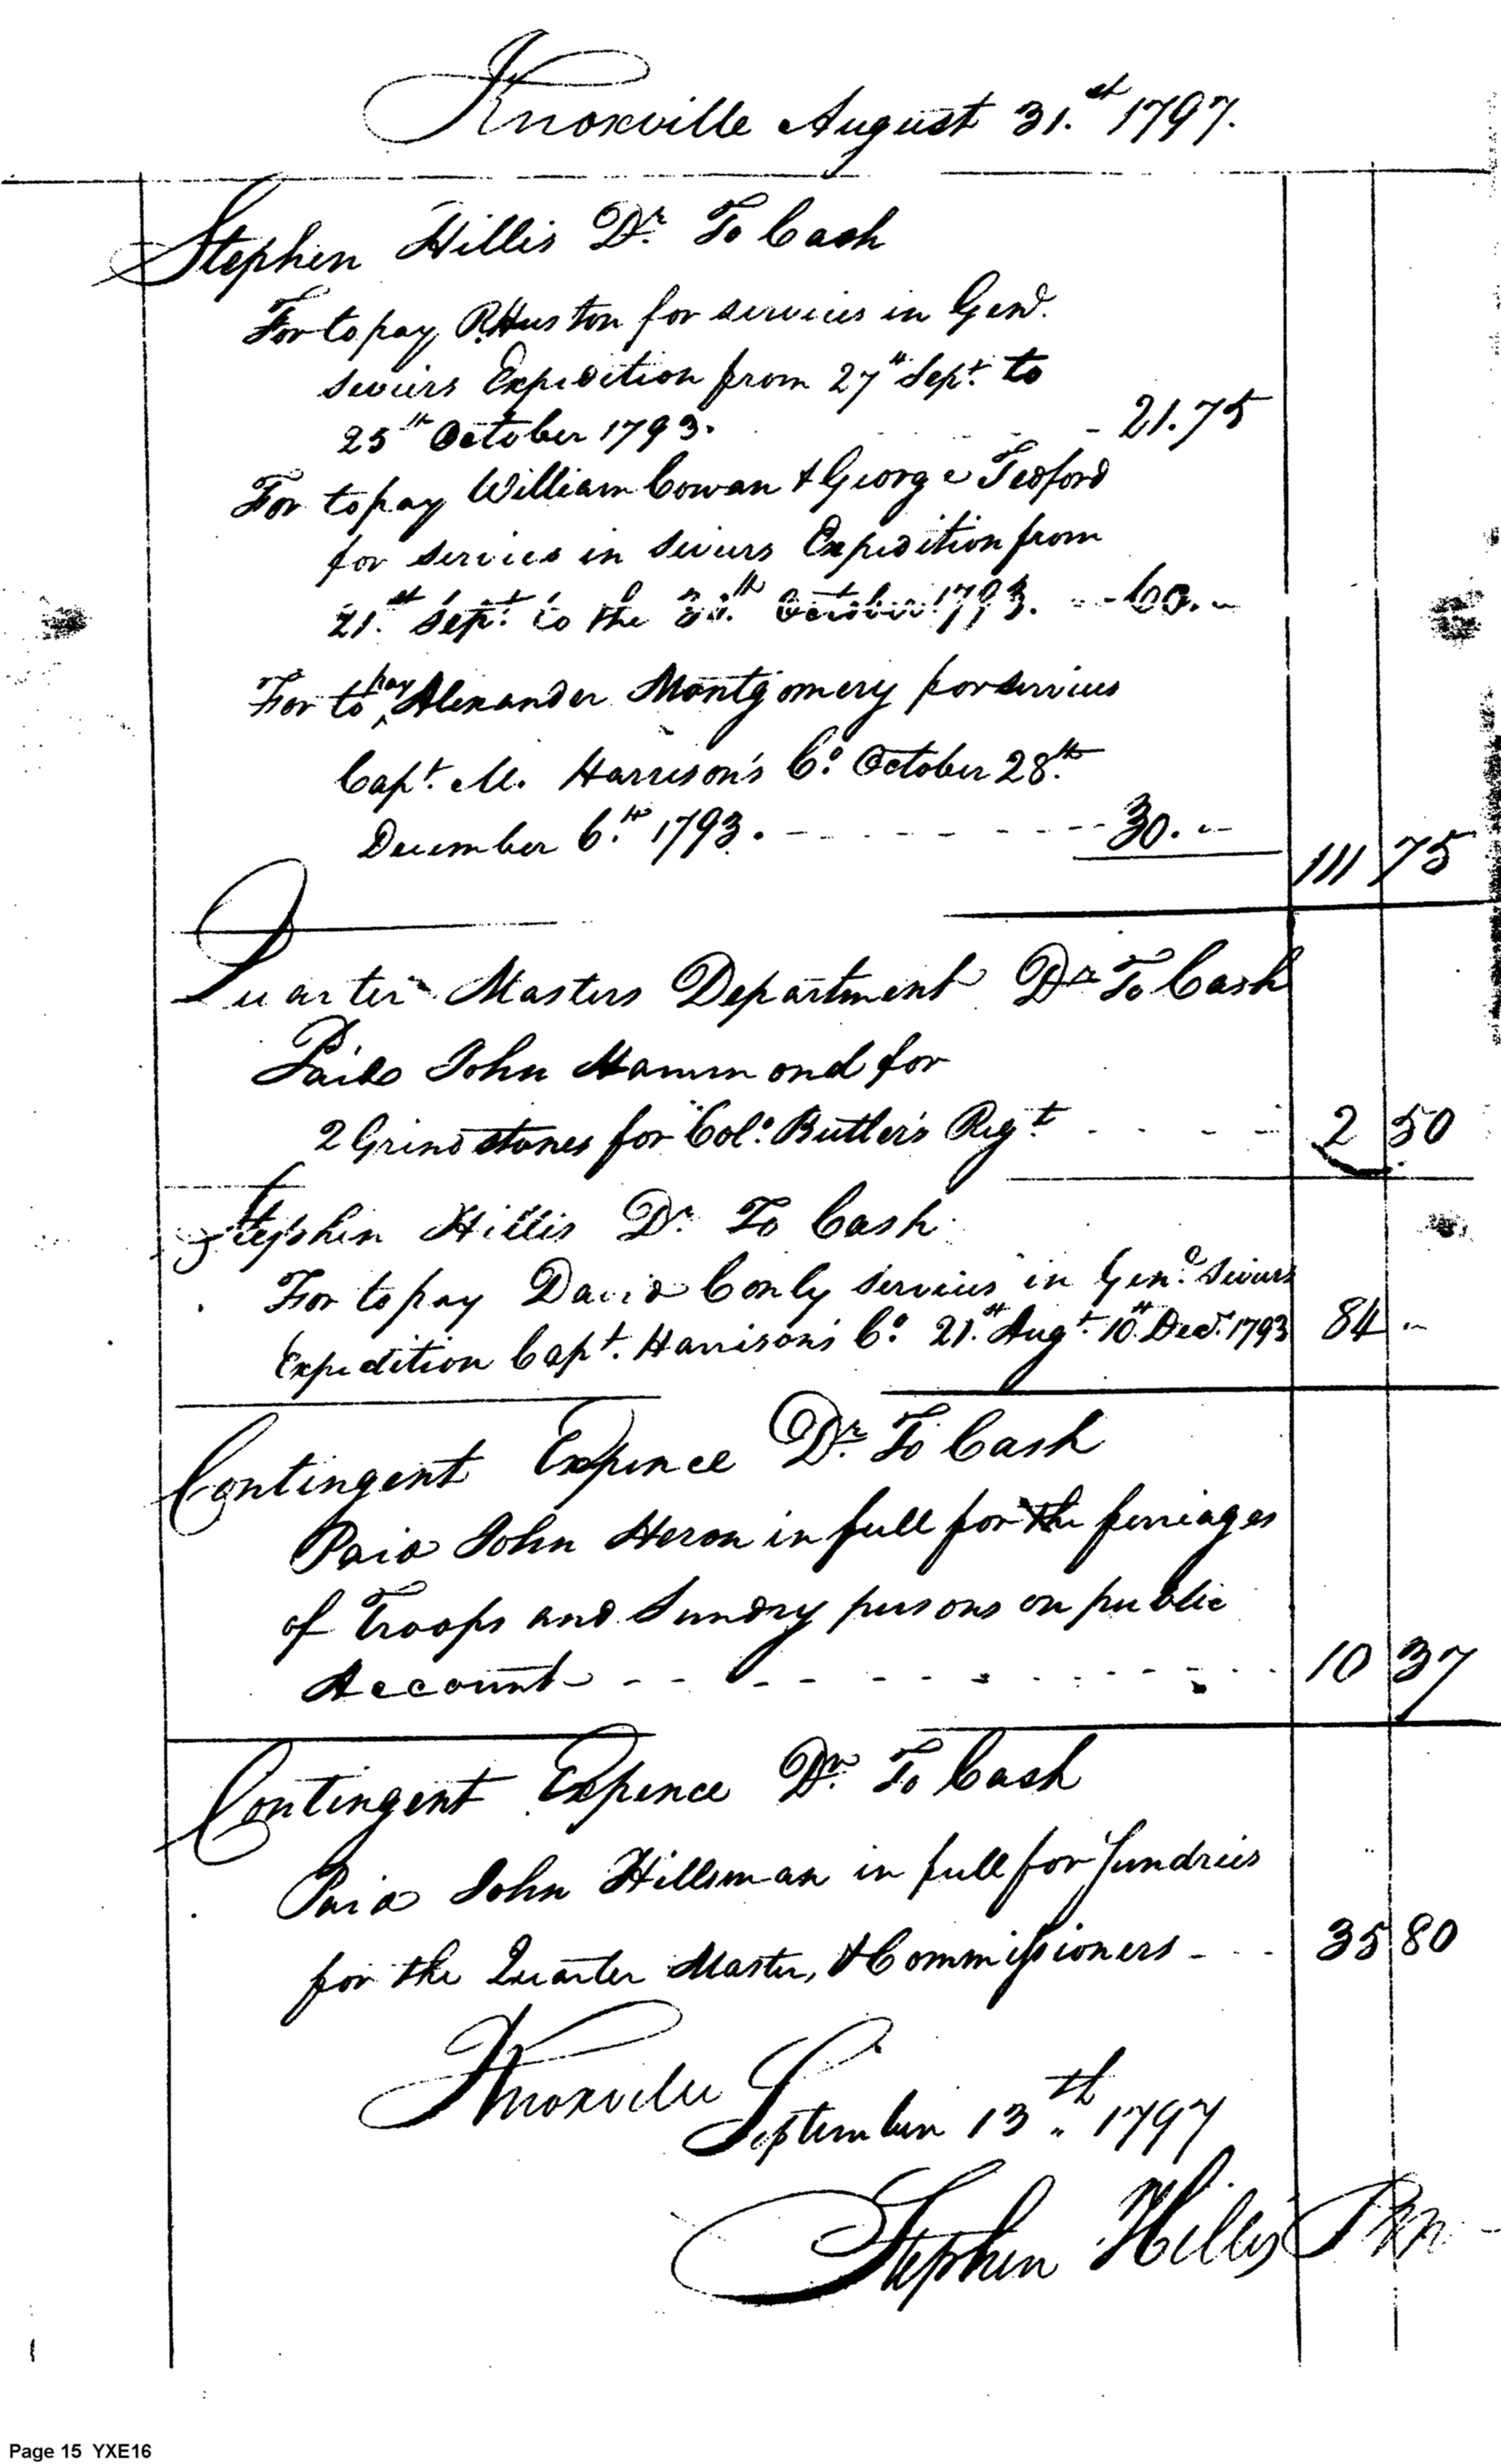 Knoxville August 31.st 1797.
Stephen Hillis Dr. To Cash
For to pay R. Huston for services in Genl.
Seviers Expedition from 27th Sept. to
25th October 1793. - 21.75
For to pay William Cowan & George Tedford
for services in Seviers Expedition from
21.st Sept. to the October 1793. -- 60. "
For to pay Alexander Montgomery for services
Capt. M. Harrison's Co. October 28.th
December 6.th 1793. - - - - - - - - 30. "
111 75
Quarter Masters Department Dr To Cash
Paid John Hammond for
2 Grindstones for Colo. Butler's Regt - - - - 2 50
Stephen Hillis Dr. To Cash
For to pay David Conly services in Genl. Seviers
Expedition Capt. Harrison's Co. 21.st Augt. 10.th Decr. 1793 84 "
Contingent Expence Dr. To Cash
Paid John Heron in full for the ferriages
of Troops and Sundry persons on public
Account - - - - - - - - - - - 10 37
Contingent Expence Dr. To Cash
Paid John Hillsman in full for Sundries
for the Quarter Master, & Commissioners - - - 35 80
Knoxville September 13th 1797
Stephen Hillis
Page 15 YXE16